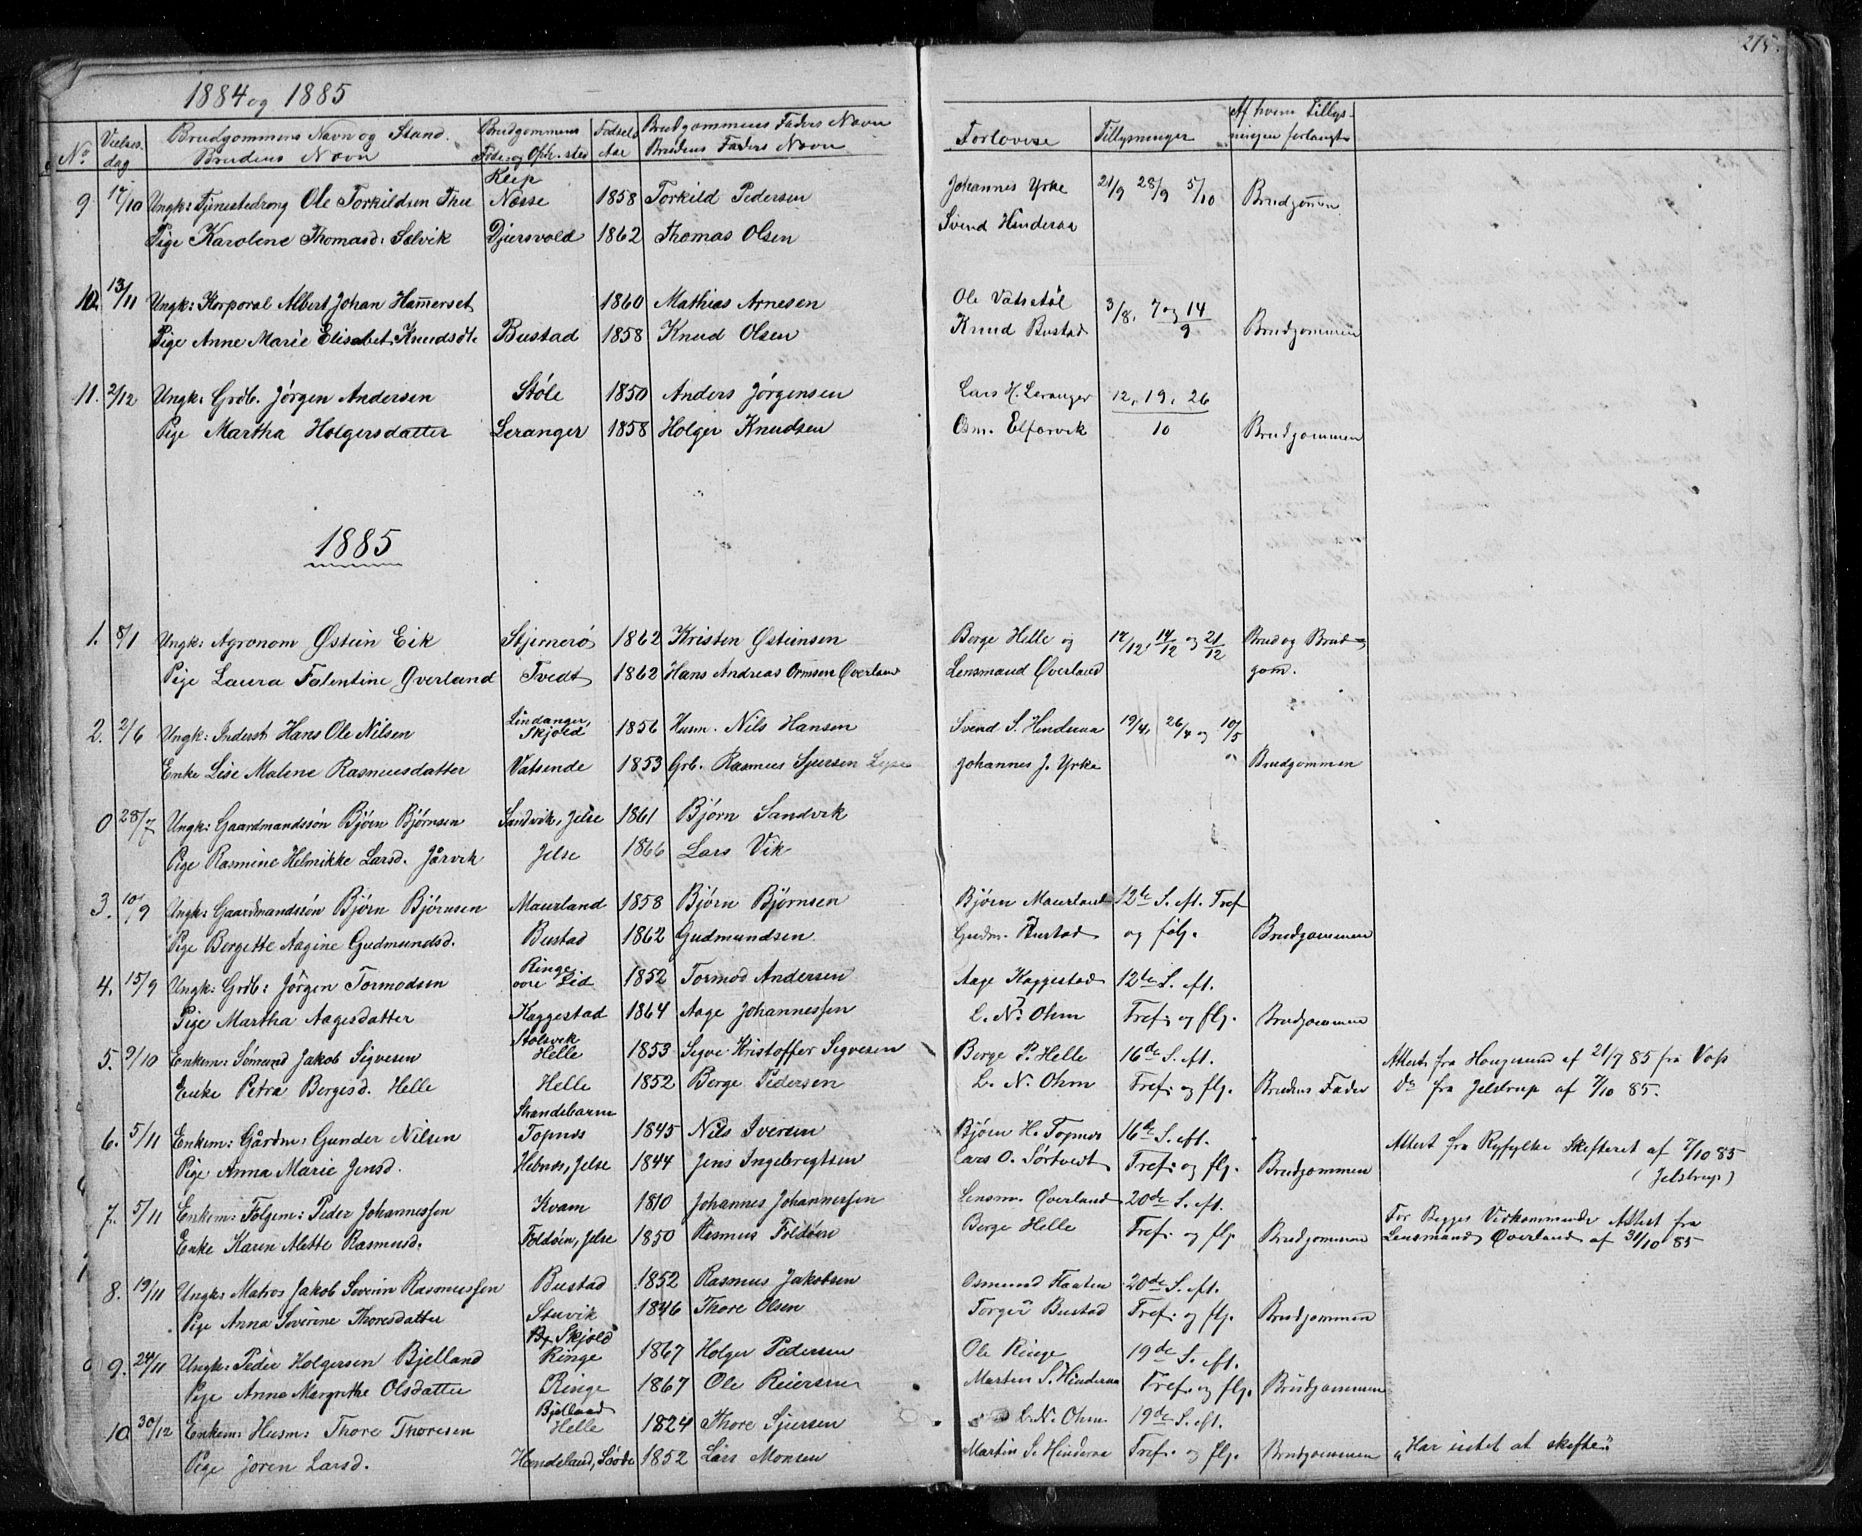 275.
1884 og 1885
No Vielses- dag Brudgommens Navn og Stand. Brudens Navn Brudgommens Føde og Oph. sted Fødsels Aar Brudgommens Faders Navn Brudens Faders Navn Forlovere Tillysninger Af hvem Tillysningen forlangt
Klep
9 17/10 Ungk: Tjenestedreng Ole Torkildsen Thu Nesse 1858 Torkild Pedersen Johannes Yrke 21/9 28/9 5/10 Brudgommen
Pige Karolene Thomasd: Selvik Djursvold 1862 Thomas Olsen Svend Hinderaa
10. 13/11 Ungk: Korporal Albert Johan Hammerset 1860 Mathias Arnesen Ole Vatsstøl 3/8, 7 og 14/9
Pige Anne Marie Elisabet Knudsdt. Bustad 1858 Knud Olsen Knud Bustad Brudgommen
11. 2/12 Ungk: Grdb. Jörgen Andersen Støle 1850 Anders Jørgensen Lars H. Leranger 12, 19, 26
Pige Martha Holgersdatter Leranger 1858 Holger Knudsen Osm. Elfarvik 10 Brudgommen
1885
1. 8/1 Ungk: Agronom Østein Eik Stjernerø 1862 Kristen Østeinsen Børge Helle og 14/12, 14/12 og 21/12 Brud og Brud-
Pige Laura Falentine Øverland Tvedt 1862 Hans Andreas Ormsen Øverland Lensmand Øverland gom.
2. 2/6 Ungk: Inderst Hans Ole Nilsen Lindanger, Skjold 1856 Husm. Nils Hansen Svend S. Hinderaa 19/4, 26/4 og 10/5
Enke Lise Malene Rasmusdatter Vatsende 1853 Grb. Rasmus Sjursen Johannes J. Yrke " Brudgommen
0 28/7 Ungk: Gaardmandssøn Bjørn Bjørnsen Sandvik, Jelse 1861 Bjørn Sandvik
Pige Rasmine Helmikke Larsd. Jårvik Jelse 1866 Lars Vik
3. 10/9 Ungk: Gaardmandssøn Bjørn Bjørnsen Maurland 1858 Bjørn Bjørnsen Bjørn Maurland 12te S. eft. Tref
Pige Bergette Aagine Gudmundsd. Bustad 1862 Gudmundsen Gudm. Bustad og følg. Brudgommen
Ringe
4. 15/9 Ungk: Grdb: Jörgen Tormodsen øvre Lid 1852 Tormod Andersen Aage Kaggestad 12te S. eft.
Pige Martha Aagesdatter Kaggestad 1864 Aage Johannessen L. N. Ohm Tref. og flg. Brudgommen
Stolsvik
5. 9/10 Enkem: Sömand Jakob Sigvesen Helle 1853 Sigve Kristoffer Sigvesen Børge P. Helle 16de S. eft. Attest fra Haugesund af 21/9 85 fra Voss
Enke Petra Børgesd. Helle Helle 1852 Børge Pedersen L. N. Ohm Tref. og flg. Brudens Fader Do fra Jelstrup af 7/10 85.
Strandebarm
6. 5/11 Enkem: Gårdm: Gunder Nilsen Topnes 1845 Nils Iversen Bjørn H. Topnes 16de S. eft. Attest fra Ryfylke Skifteret af 7/10 85
Pige Anna Marie Jensd. Hebnes, Jelse 1844 Jens Ingebregtsen Lars O. Sørtvedt Tref. og flg. Brudgommen (Jelstrup)
7. 5/11 Enkem: Folgem: Peder Johannessen Kvam 1810 Johannes Johannessen Lensm. Øverland 20de S. eft. For Begges Vedkommende Attest fra
Enke Karen Alette Rasmusd. Foldøen, Jelse 1850 Rasmus Foldøen Børge Helle Tref. og flg. Brudgommen Lensmand Øverland af 31/10 85
8. 19/11 Ungk: Matros Jakob Severin Rasmussen Bustad 1852 Rasmus Jakobsen Osmund Haaten 20de S. eft.
Pige Anna Severine Thoresdatter Stuvik 1846 Thore Olsen Torger Bustad Tref. og flg. Brudgommen
Skjold
9. 24/11 Ungk: Peder Holgersen Bjelland Ringe 1867 Holger Pedersen Ole Ringe 19de S. eft.
Pige Anna Margrethe Olsdatter Ringe 1867 Ole Reiersen Martin S. Hinderaa Tref. og flg. Brudgommen
Bjelland
10 30/12 Enkem: Husm: Thore Thoresen Helle 1824 Thore Sjursen L. N. Ohm 19de S. eft.
Pige Jøren Larsd. Handeland, Søvde 1852 Lars Monsen Martin S. Hinderaa Tref. og flg. Brudgommen "Har intet at skifte"